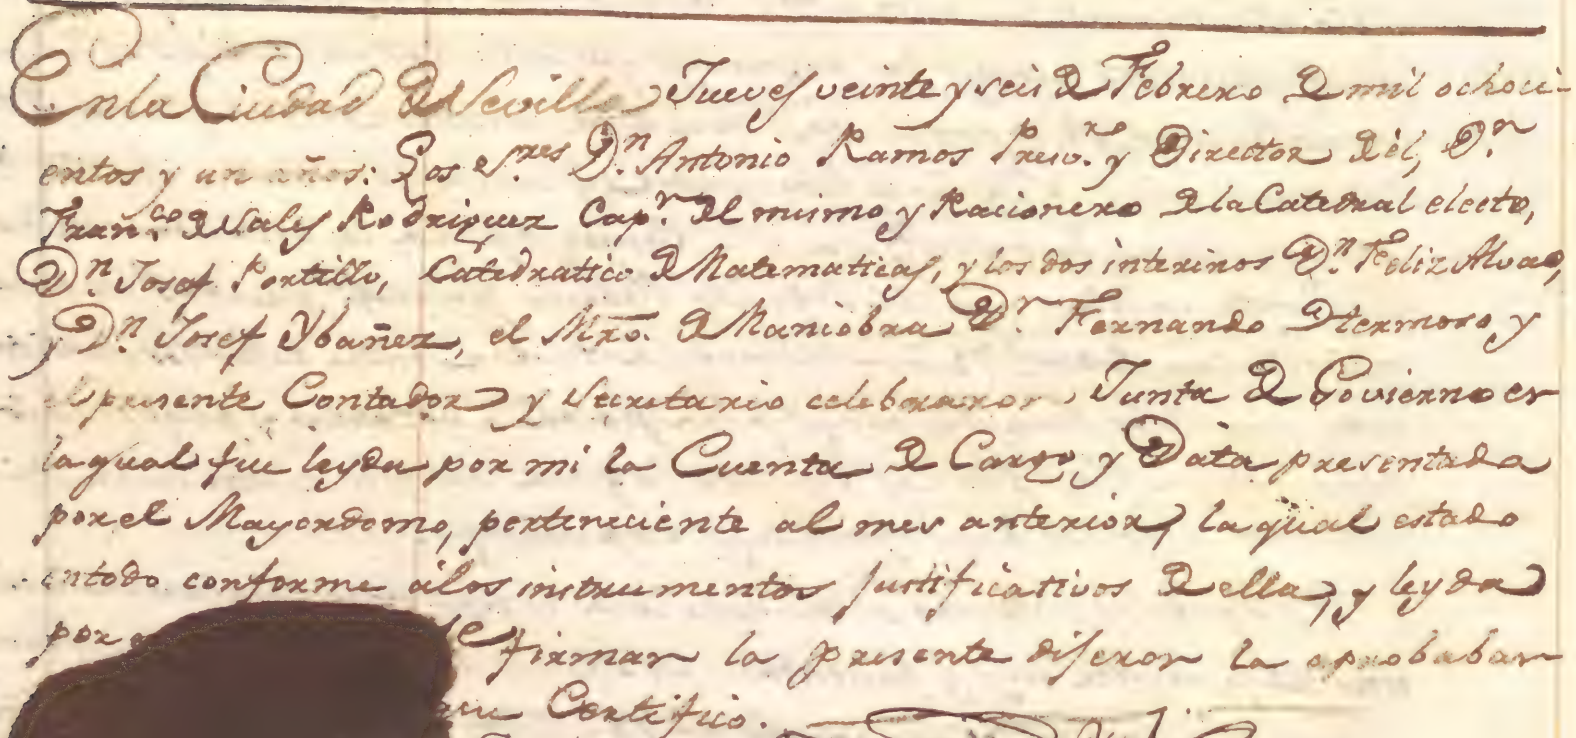 En la Ciudad de Sevilla Jueves veinte y seis de Febrero de mil ochoci-
entos y un años: Los S.res D.n Antonio Ramos Presv.ro y Director de él, D.n
Fran.co de Sales Rodriguez Cap.n del mismo y Racionero de la Catedral electo,
D.n Josef Portillo, Catedratico de Matematicas, y los dos interinos D.n Feliz Alvae,
y D.n Josef Ybañez, el Mro. de Maniobra D.n Fernando Hermoso, y
el presente Contador y Secretario celebraron Junta de Govierno en
la qual fue leyda por mi la Cuenta de Cargo y Data presentada
por el Mayordomo, perteneciente al mes anterior, la qual estado
en todo conforme á los instrumentos justificativos de ella, y leyda
por firmar la presente dijeron la aprobaban
que Certifico.